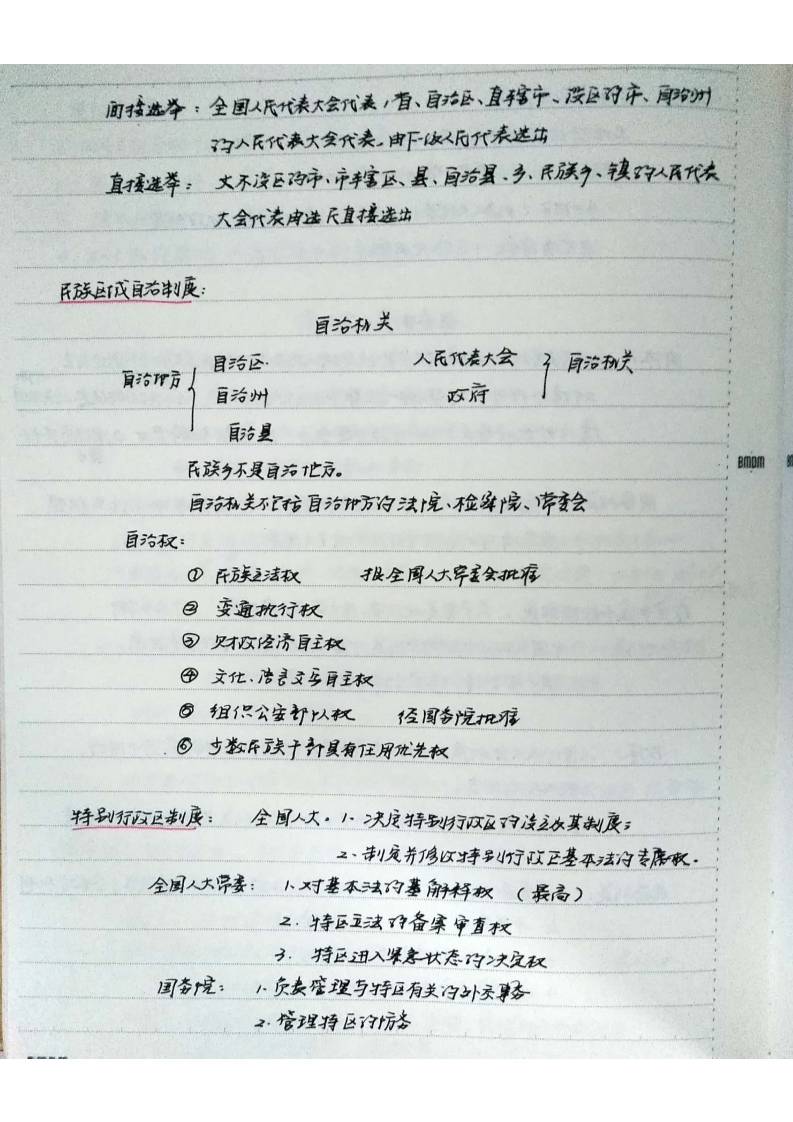 间接选举：全国人民代表大会代表，省、自治区、直辖市、设区的市、自治州
的人民代表大会代表，由下级人民代表选出
直接选举：不设区的市、市辖区、县、自治县、乡、民族乡、镇的人民代表
大会代表由选民直接选出
民族区域自治制度：
自治机关
自治地方 { 自治区 人民代表大会 } 自治机关
自治州 政府
自治县
民族乡不是自治地方。
自治机关不包括自治地方的法院、检察院、常委会
自治权：
① 民族立法权 报全国人大常委会批准
② 变通执行权
③ 财政经济自主权
④ 文化、语言文字自主权
⑤ 组织公安部队权 经国务院批准
⑥ 少数民族干部具有任用优先权
特别行政区制度： 全国人大。1、决定特别行政区的设立及其制度；
2、制定并修改特别行政区基本法的专属权.
全国人大常委： 1、对基本法的解释权 （最高）
2. 特区立法的备案审查权
3. 特区进入紧急状态的决定权
国务院： 1、负责管理与特区有关的外交事务
2. 管理特区的防务
BMDM